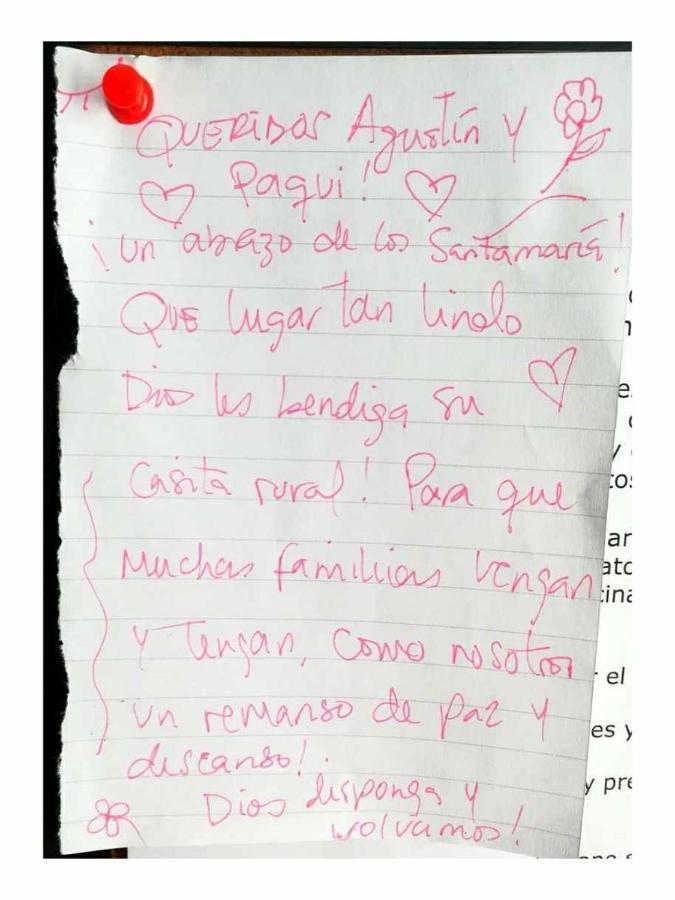 QUERIDOS Agustín y
Paqui!
¡un abrazo de los Santamaría!
Que lugar tan lindo
Dios les bendiga su
Casita rural! Para que
muchas familias vengan
y tengan, como nosotros
un remanso de paz y
descanso!
Dios disponga y
volvamos!
el
es y
y pre